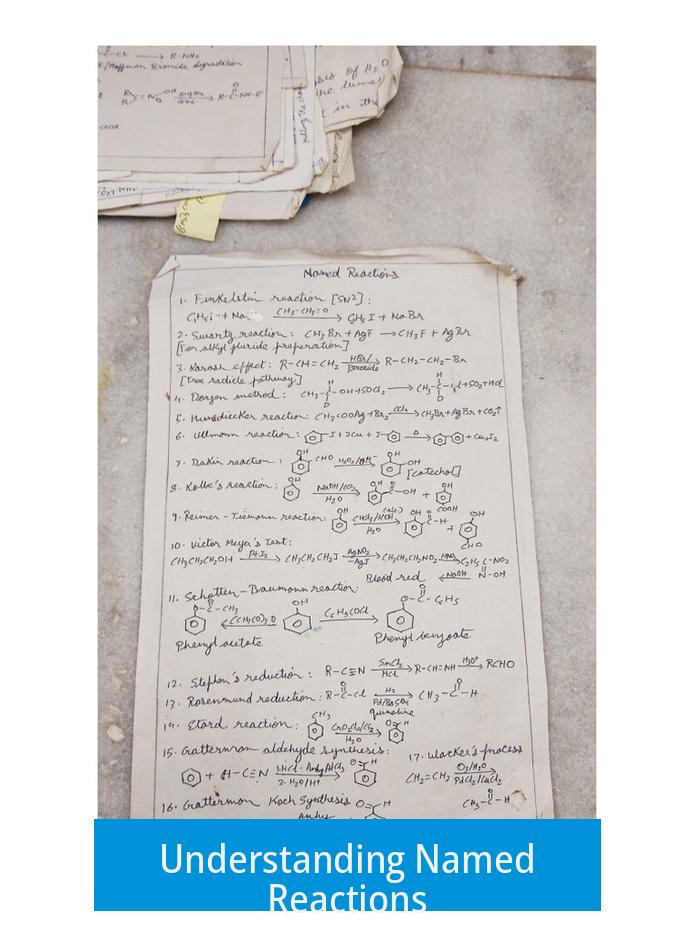 R-NH₂
Hoffman Bromide degradation
of H₂O
in the
Named Reactions
1. Finkelstin reaction [SN²] :
CH₃-CH₂=O
I + NaBr
2. Swartz reaction : CH₃Br + AgF → CH₃F + AgBr
[For alkyl fluride preperation]
3. Karash effect : R-CH=CH₂ HBr/Peroxide → R-CH₂-CH₂-Br
[Free radicle pathway]
4. Darzen method : CH₃-C-OH + SOCl₂ → CH₃-C-Cl + SO₂ + HCl
H H
D D
5. Hunsdiecker reaction : CH₃COOAg + Br₂ CCl₄ → CH₃Br + AgBr + CO₂↑
6. Ullmann reaction : I + 2Cu + I Δ → + Cu₂I₂
7. Dakin reaction : OH CHO H₂O₂/OH⁻ → OH OH [catechol]
8. Kolbe's reaction : OH NaOH/CO₂ H₂O → OH O C-OH + OH
COOH
9. Reimer-Tiemann reaction : OH CHCl₃/KOH (alc) H₂O → OH O C-H + OH CHO
10. Victor Meyer's Test :
CH₃CH₂CH₂OH P+I₂ → CH₃CH₂CH₂I AgNO₂ -AgI → CH₃CH₂CH₂NO₂ HNO₂ → C₂H₅ C-NO₂
Blood red ← NaOH N-OH
11. Schotten-Baumann reaction :
O-C-CH₃ ← (CH₃CO)₂O OH C₆H₅COCl → O-C-C₆H₅
Phenyl acetate Phenyl benzoate
12. Stephen's reduction : R-C≡N SnCl₂ HCl → R-CH=NH H₃O⁺ → RCHO
13. Rosenmund reduction : R-C-Cl H₂ Pd/BaSO₄ quinoline → CH₃-C-H
14. Etard reaction : CH₃ CrO₂Cl₂/CS₂ H₂O →
15. Gatterman aldehyde synthesis :
+ H-C≡N 1. HCl · Anhy AlCl₃ 2. H₂O/H⁺ → O H
17. Wacker's process
CH₂=CH₂ O₂/H₂O PdCl₂/CuCl₂
CH₃-C-H
16. Gattermon Koch Synthesis O H
Anhy
Understanding Named
Reactions